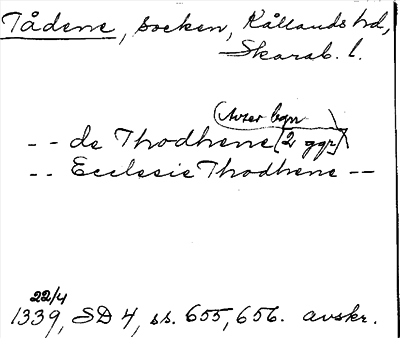 Tådene, socken, Kållands hd,
Skarab. l.
(Avser bgn)
- - de Thodhene (2 ggr)
- - Ecclesie Thodhene - -
22/4
1339, SD 4, ss. 655, 656. avskr.